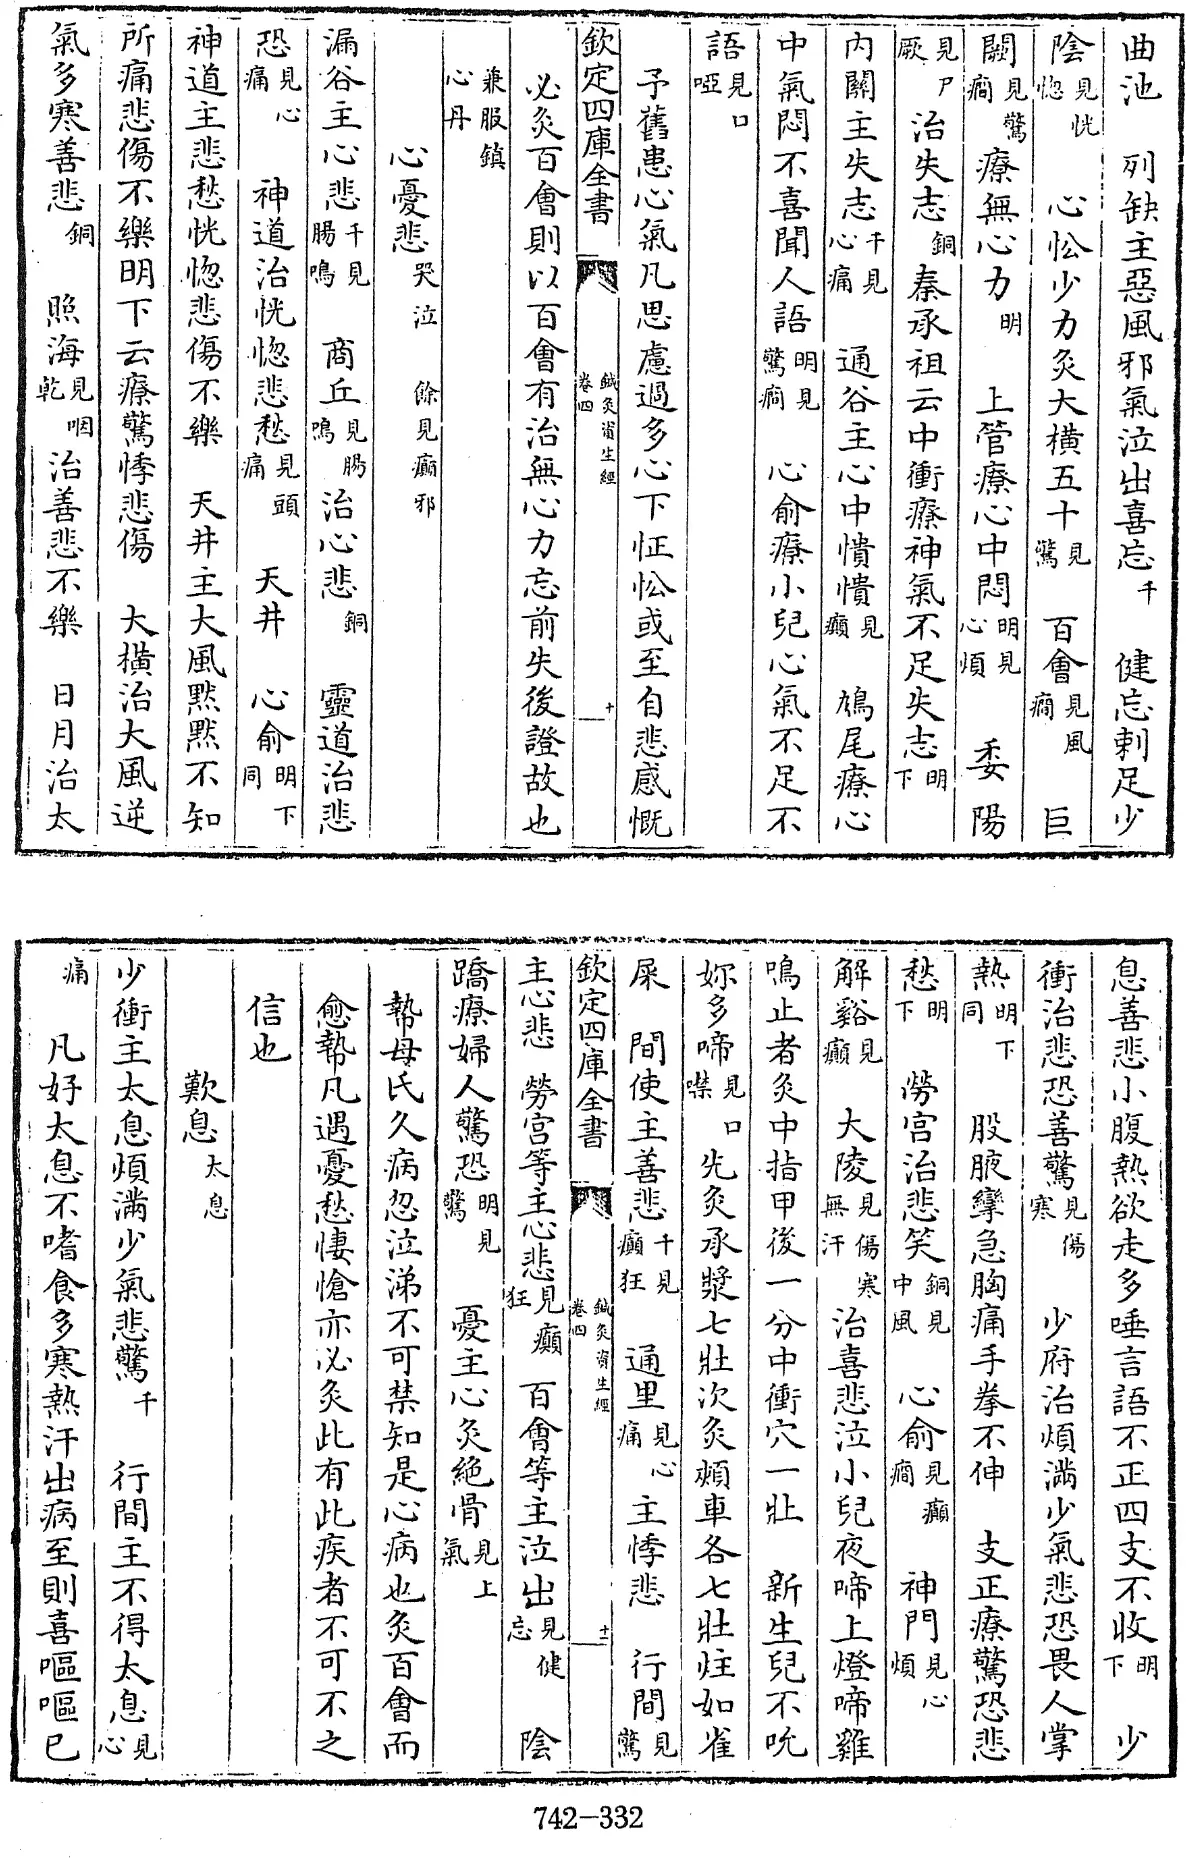 曲池　列缺主惡風邪氣泣出喜忘千　健忘刺足少
陰見恍惚　心忪少力灸大橫五十見驚　百會見風癎　巨
闕見驚癎療無心力明　上管療心中悶明見心煩　委陽
見尸厥治失志銅秦承祖云中衝療神氣不足失志明下
內關主失志千見心痛　通谷主心中憒憒見癲　鳩尾療心
中氣悶不喜聞人語明見驚癎　心俞療小兒心氣不足不
語見口啞
予舊患心氣凡思慮過多心下怔忪或至自悲感慨
欽定四庫全書　鍼灸資生經卷四　十
必灸百會則以百會有治無心力忘前失後證故也
兼服鎮心丹
心憂悲哭泣　餘見癲邪
漏谷主心悲千見腸鳴　商丘見腸鳴治心悲銅　靈道治悲
恐見心痛　神道治恍惚悲愁見頭痛　天井　心俞明下同
神道主悲愁恍惚悲傷不樂　天井主大風默默不知
所痛悲傷不樂明下云療驚悸悲傷　大橫治大風逆
氣多寒善悲銅　照海見咽乾治善悲不樂　日月治太
息善悲小腹熱欲走多唾言語不正四支不收明下　少
衝治悲恐善驚見傷寒　少府治煩滿少氣悲恐畏人掌
熱明下同　股腋攣急胸痛手拳不伸　支正療驚恐悲
愁明下　勞宮治悲笑銅見中風　心俞見癲癎　神門見心煩
解谿見癲　大陵見傷寒無汗治喜悲泣小兒夜啼上燈啼雞
鳴止者灸中指甲後一分中衝穴一壯　新生兒不吮
妳多啼見口噤先灸承漿七壯次灸頰車各七壯炷如雀
屎　間使主善悲千見癲狂　通里見心痛主悸悲　行間見驚
欽定四庫全書　鍼灸資生經卷四　十一
主心悲　勞宮等主心悲見癲狂　百會等主泣出見健忘　陰
蹻療婦人驚恐明見驚　憂主心灸絕骨見上氣
執母氏久病忍泣涕不可禁知是心病也灸百會而
愈執凡遇憂愁悽愴亦必灸此有此疾者不可不之
信也
歎息太息
少衝主太息煩滿少氣悲驚千　行間主不得太息見心
痛　凡好太息不嗜食多寒熱汗出病至則喜嘔嘔已
742-332